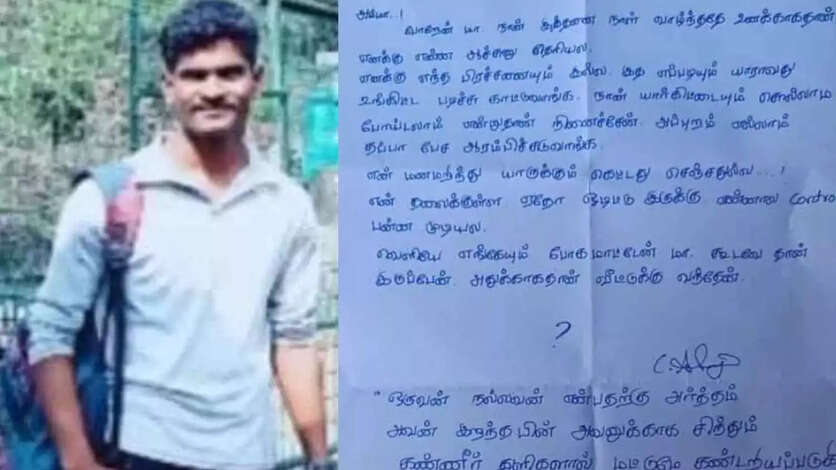 அம்மா..!
வாறேன் மா. நான் இத்தனை நாள் வாழ்ந்ததே உனக்காகதான்
எனக்கு என்ன ஆச்சுனு தெரியல.
எனக்கு எந்த பிரச்சனையும் இல்ல. இத எப்படியும் யாராவது
உங்கிட்ட படிச்சு காட்டுவாங்க. நான் யார்கிட்டையும் சொல்லாம
போய்டலாம் என்றுதான் நினைச்சேன். அப்புறம் எல்லாம்
தப்பா பேச ஆரம்பிச்சுடுவாங்க.
என் மனமறிந்து யாருக்கும் கெட்டது செஞ்சதில்ல...!
என் தலைக்குள்ள ஏதோ ஓடிட்டு இருக்கு என்னால Contro
பன்ன முடியல.
வெளியே எங்கேயும் போகமாட்டேன் மா. கூடவே தான்
இருப்பேன். அதுக்காகதான் வீட்டுக்கு வந்தேன்.
?
"ஒருவன் நல்லவன் என்பதற்கு அர்த்தம்
அவன் இறந்தபின் அவனுக்காக சிந்தும்
கண்ணீர் துளிகளால் மட்டுமே